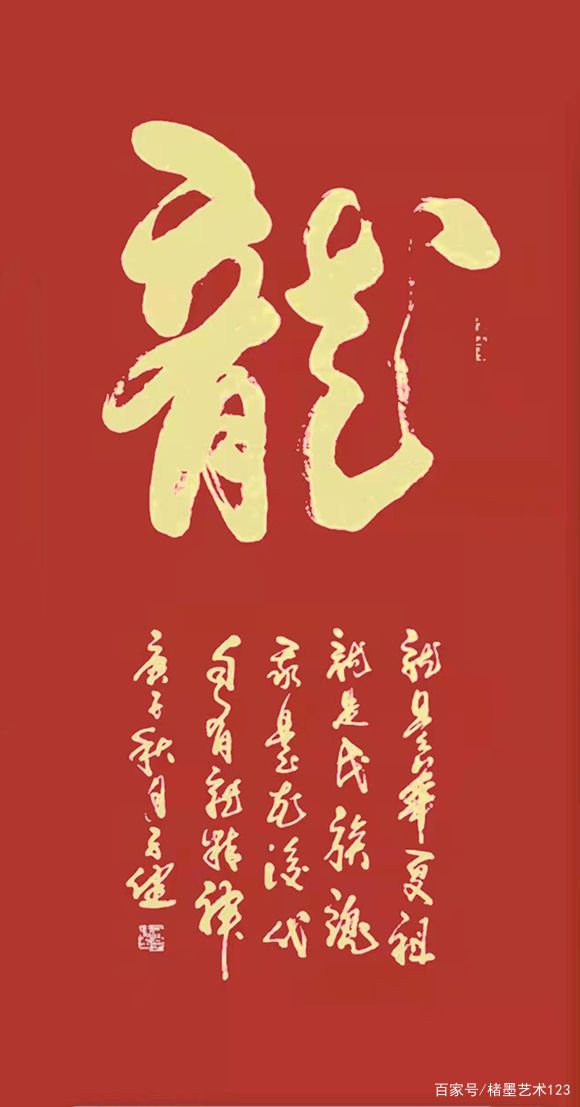 龍
龍是華夏祖
龍是民族魂
我是龙後代
自有龍精神
庚子秋月
百家号/楮墨艺术123